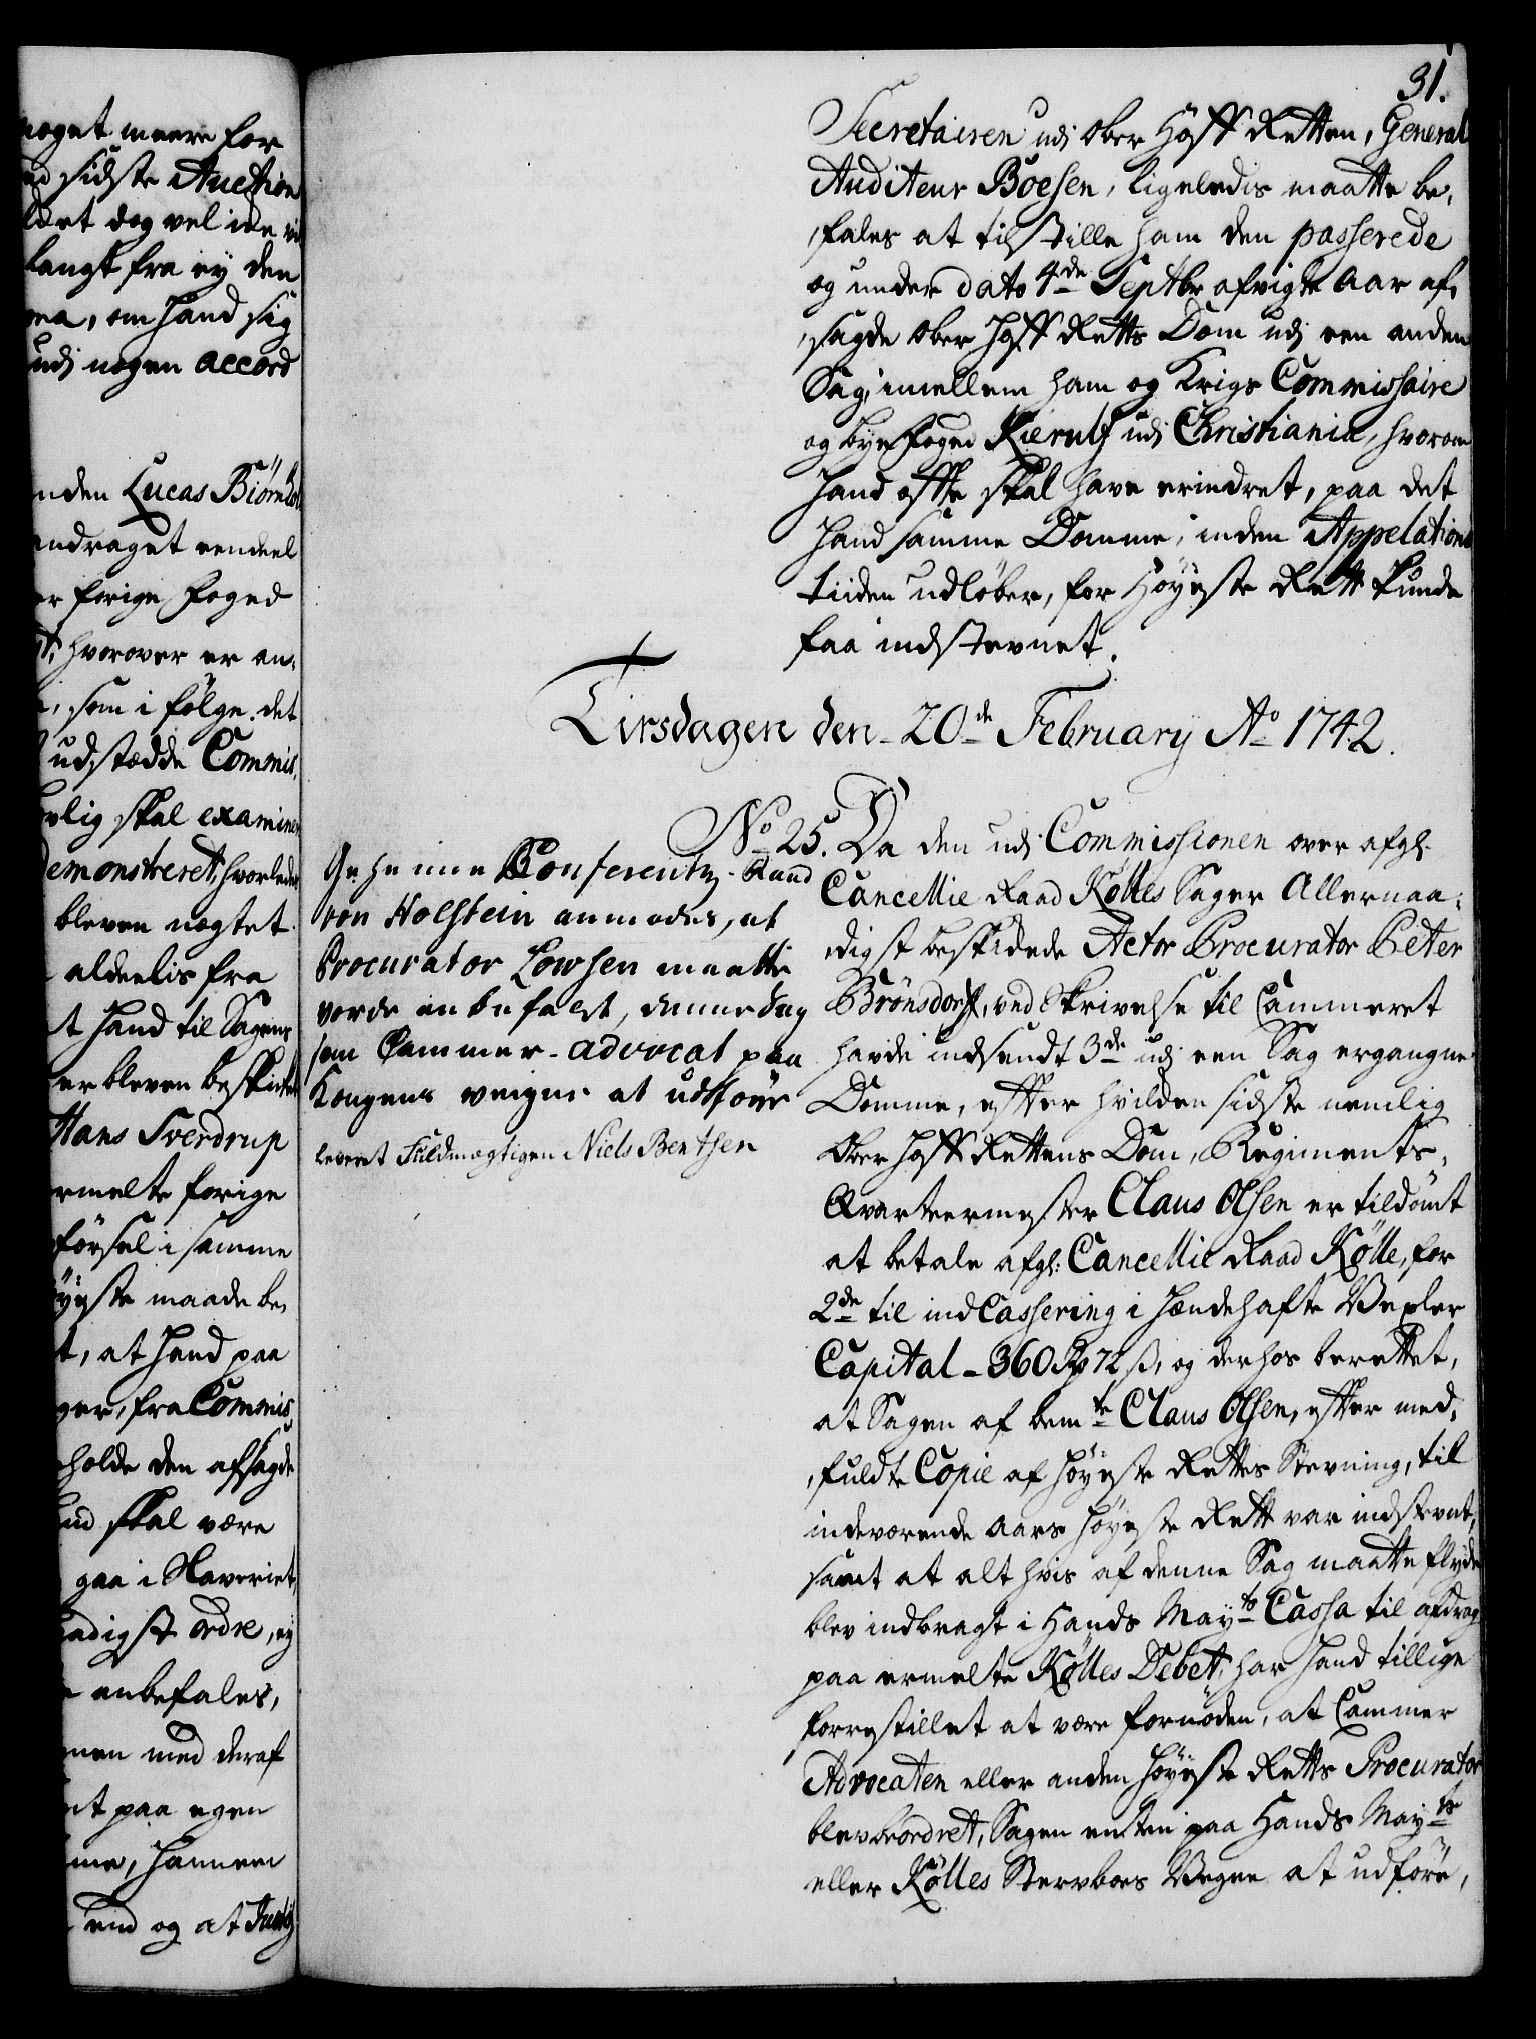 noget meere for
sidste Auction
det dog vel icke
langt fra ey den
om hand sig
udj nogen accord
Lucas Biørn
andraget eendeel
forige Foged
hvorover er an-
som i følge det
udstædde Commis,
skal examine
demonstreret, hvorledes
bleven negtet
aldeelis fra
hand til Sagens
er bleven beskicket
Hans Sverdrup
ermelte forige
førsel i samme
øyeste maade be,
at hand paa
fra Commis
holde den afsagde
skal være
gaa i Slaveriet,
naadigst ordre, ey
anbefales,
men med deraf
paa egen
hannem
end og at
31.
Secretairen udj Ober Hoff Retten, General
Auditeur Boesen, ligeledis maatte be,
,fales at tilstille ham den passerede
og under dato 4de Septbr afvigte Aar af,
,sagde Ober Hoff Retts Dom udj een anden
Sag, imellem ham og Krigs Commissaire
og byefoged Kierulf udj Christiania, hvorom
hand offte skal have erindret, paa det
hand samme Domme, inden Appelations
tiiden udløber, for Høyeste Rett kunde
faa indstevnet.
Tirsdagen den 20de February Ao 1742.
No 25. Da den udj Commissionen over afgl.
Cancellie Raad Kølles Sager Allernaa-
digst beskickede Actor Procurator Peter
Brönsdorff, ved Skrivelse til Cammeret
havde indsendt 3de udj een Sag ergangne
Domme, efter hvilken sidste nemlig
Ober Hoff Rettens Dom, Regiments-
Qvarteermester Claus Olsen er tildømt
at betale afgl: Cancellie Raad Kölle, for
2de til indCassering i hændehafte Vexler
Capital - 360 Rdr 72 ß, og derhos berettet,
at Sagen af bemte Claus Olsen, efter med,
,fuldte Copie af høyeste Rettes Stevning, til
indeværende Aars høyeste Rett var indstevnt,
samt at alt hvis af denne Sag maatte flyde
blev indbragt i Hands Mayts Cassa til afdrag
paa ermelte Kölles Debet, har hand tillige
forrestillet at være fornøden, at Cammer
Advocaten eller anden høyeste Retts Procurator
blev beordret, Sagen enten paa Hands Mayts
eller Kölles Sterboes Vegne at udføre,
Geheime Conferentz-Raad
von Holstein anmodes, at
Procurator Lowsen maatte
vorde anbefalet, denne Sag
som Cammer-advocat paa
Kongens veigne at udføre
leveret Fuldmegtigen Niels Bentsen